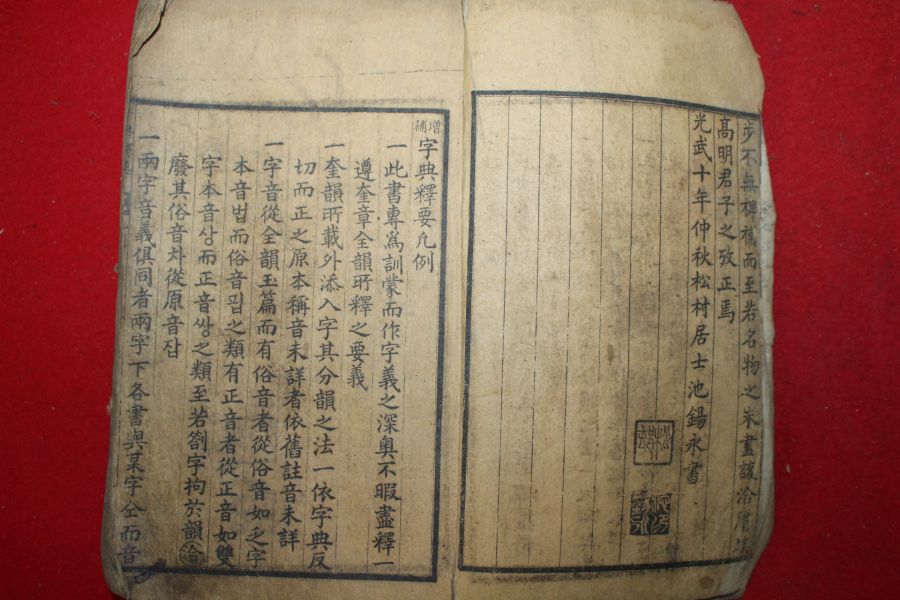 步不無裨補而至若名物之未盡該洽
高明君子之攷正焉
光武十年仲秋松村居士池錫永書
增補字典釋要凡例
一此書專爲訓蒙而作字義之深奧不暇盡釋一
遵奎章全韻所釋之要義
一奎韻所載外添入字其分韻之法一依字典反
切而正之原本稱音未詳者依舊註音未詳
一字音從全韻玉篇而有俗音者從俗音如乏字
本音법而俗音핍之類有正音者從正音如雙
字本音상而正音쌍之類至若劄字拘於韻洽
廢其俗音차從原音잡
一兩字音義俱同者兩字下各書與某字仝而音